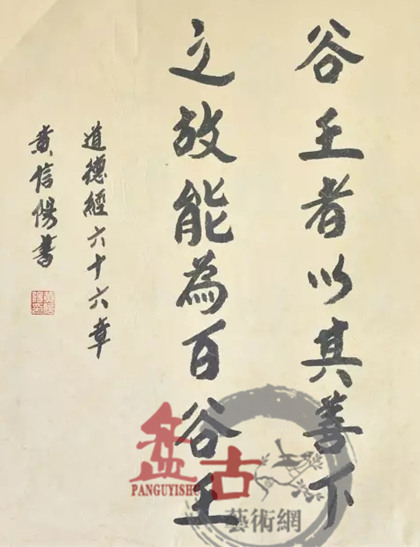 谷王者以其善下
之故能為百谷王
道德經六十六章
黄信陽書
盘古
PANGUYISHU
藝術網